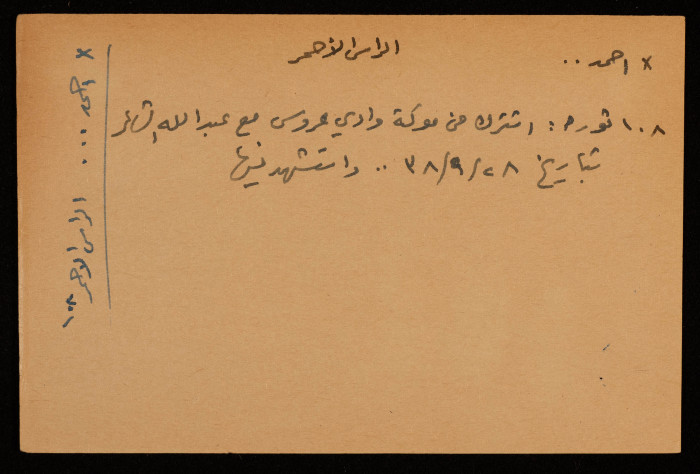 x احمد .. الراس الأحمر
١٠٨ ثورة : اشترك في معركة وادي عروس مع عبدالله الشاعر
بتاريخ ٢٨/٩/٣٨ .. واستشهد فيها
x احمد ... الراس الأحمر ١٠٨